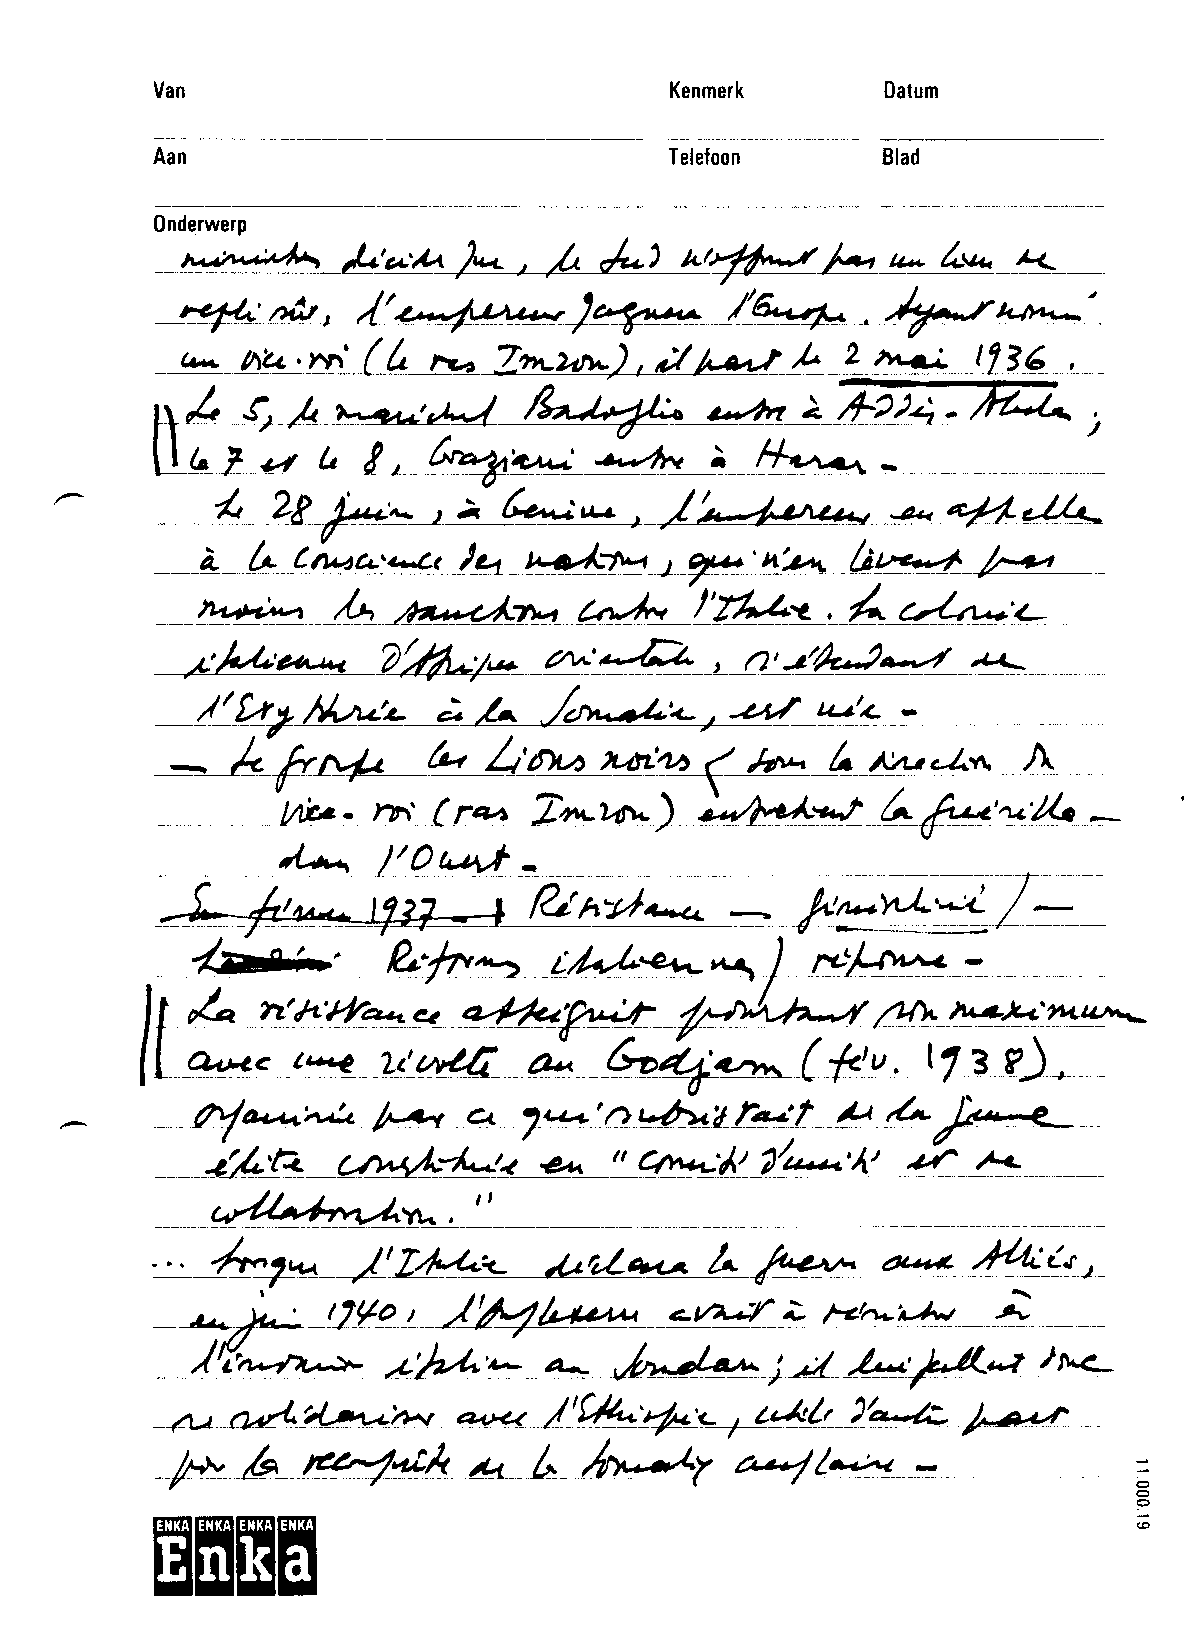 Van Kenmerk Datum
Aan Telefoon Blad
Onderwerp
ministres décide que, le Sud n'offrant pas un lieu de
repli sûr, l'empereur gagnera l'Europe. Ayant nommé
un vice-roi (le ras Imzou), il part le 2 mai 1936.
Le 5, le maréchal Badoglio entre à Addis-Abeba ;
le 7 et le 8, Graziani entre à Harar -
Le 28 juin, à Genève, l'empereur en appelle
à la conscience des nations, qui n'en lèvent pas
moins les sanctions contre l'Italie. La colonie
italienne d'Afrique orientale, s'étendant de
l'Erythrée à la Somalie, est née -
- Le groupe les Lions noirs ( sous la direction du
vice-roi (ras Imzou) entretient la guérilla -
dans l'Ouest -
En février 1937 - Résistance -
Réformes italiennes) réponse -
La résistance atteignit pourtant son maximum
avec une révolte au Godjam (fév. 1938),
organisée par ce qui subsistait de la jeune
élite constituée en "Comité d'unité et de
collaboration."
... Lorsque l'Italie déclara la guerre aux Alliés,
en juin 1940, l'Angleterre avait à résister à
l'invasion italienne au Soudan ; il lui fallut donc
se solidariser avec l'Ethiopie, utile d'autre part
pour la reconquête de la Somalie anglaise -
11.000.19
ENKA ENKA ENKA ENKA
Enka